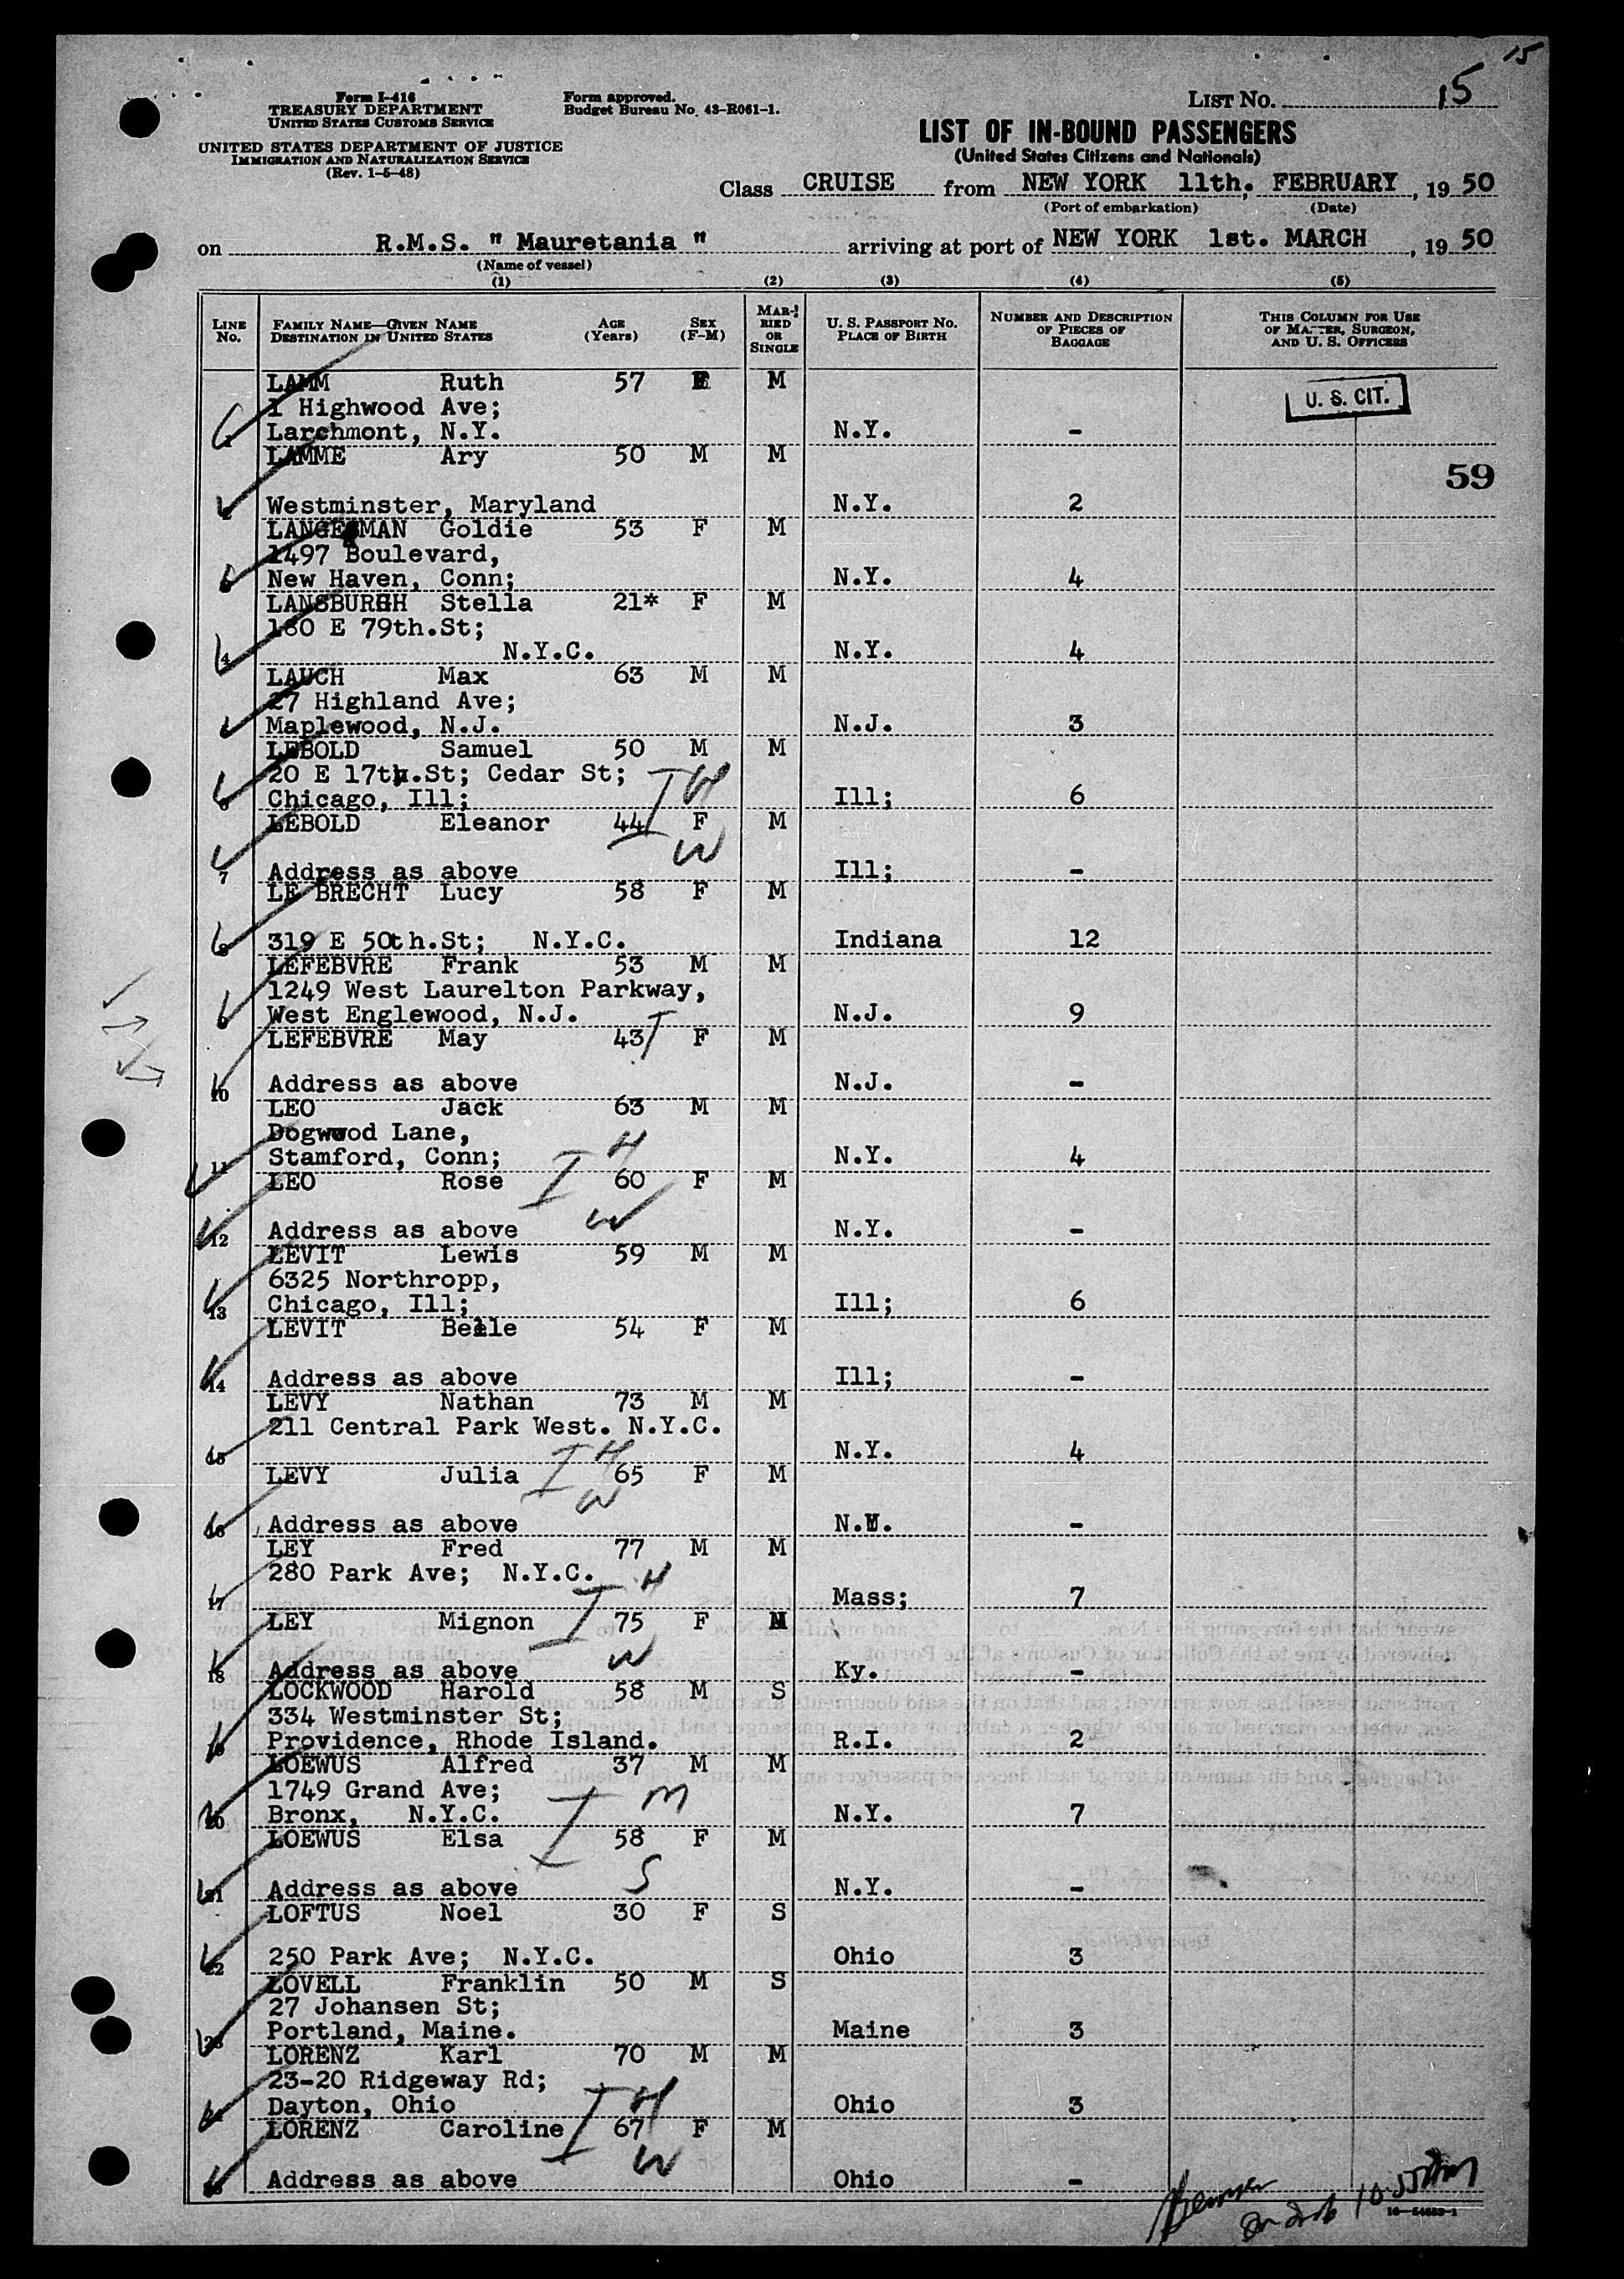 15
Form I-416
TREASURY DEPARTMENT
UNITED STATES CUSTOMS SERVICE
Form approved.
Budget Bureau No. 43-R061-1.
LIST NO. 15
UNITED STATES DEPARTMENT OF JUSTICE
IMMIGRATION AND NATURALIZATION SERVICE
(Rev. 1-5-48)
LIST OF IN-BOUND PASSENGERS
(United States Citizens and Nationals)
Class CRUISE from NEW YORK 11th. FEBRUARY, 1950
(Port of embarkation) (Date)
on R.M.S. " Mauretania " arriving at port of NEW YORK 1st. MARCH, 1950
(Name of vessel)
(1) (2) (3) (4) (5)
LINE NO. FAMILY NAME—GIVEN NAME DESTINATION IN UNITED STATES AGE (Years) SEX (F-M) MARRIED OR SINGLE U. S. PASSPORT NO. PLACE OF BIRTH NUMBER AND DESCRIPTION OF PIECES OF BAGGAGE THIS COLUMN FOR USE OF MASTER, SURGEON, AND U. S. OFFICERS
LAMM Ruth 57 F M
U. S. CIT.
1 Highwood Ave;
Larchmont, N.Y. N.Y. -
LAMME Ary 50 M M
59
Westminster, Maryland N.Y. 2
LANGERMAN Goldie 53 F M
1497 Boulevard,
New Haven, Conn; N.Y. 4
LANSBURGH Stella 21* F M
180 E 79th.St;
4 N.Y.C. N.Y. 4
LAUCH Max 63 M M
27 Highland Ave;
Maplewood, N.J. N.J. 3
LEBOLD Samuel 50 M M
20 E 17th.St; Cedar St;
I H
6 Chicago, Ill; Ill; 6
LEBOLD Eleanor 44 F M
W
7 Address as above Ill; -
LE BRECHT Lucy 58 F M
8 319 E 50th.St; N.Y.C. Indiana 12
LEFEBVRE Frank 53 M M
1249 West Laurelton Parkway,
West Englewood, N.J. N.J. 9
LEFEBVRE May 43 I F M
10 Address as above N.J. -
LEO Jack 63 M M
Dogwood Lane,
11 Stamford, Conn; I H N.Y. 4
LEO Rose 60 F M
W
12 Address as above N.Y. -
LEVIT Lewis 59 M M
6325 Northropp,
13 Chicago, Ill; Ill; 6
LEVIT Belle 54 F M
14 Address as above Ill; -
LEVY Nathan 73 M M
211 Central Park West. N.Y.C.
15 I H N.Y. 4
LEVY Julia 65 F M
W
16 Address as above N.Y. -
LEY Fred 77 M M
280 Park Ave; N.Y.C.
17 I H Mass; 7
LEY Mignon 75 F M
W
18 Address as above Ky. -
LOCKWOOD Harold 58 M S
334 Westminster St;
19 Providence, Rhode Island. R.I. 2
LOEWUS Alfred 37 M M
1749 Grand Ave;
20 Bronx, N.Y.C. I M N.Y. 7
LOEWUS Elsa 58 F M
S
21 Address as above N.Y. -
LOFTUS Noel 30 F S
22 250 Park Ave; N.Y.C. Ohio 3
LOVELL Franklin 50 M S
27 Johansen St;
23 Portland, Maine. Maine 3
LORENZ Karl 70 M M
23-20 Ridgeway Rd;
24 Dayton, Ohio I H Ohio 3
LORENZ Caroline 67 F M
W
25 Address as above Ohio -
16-54683-1